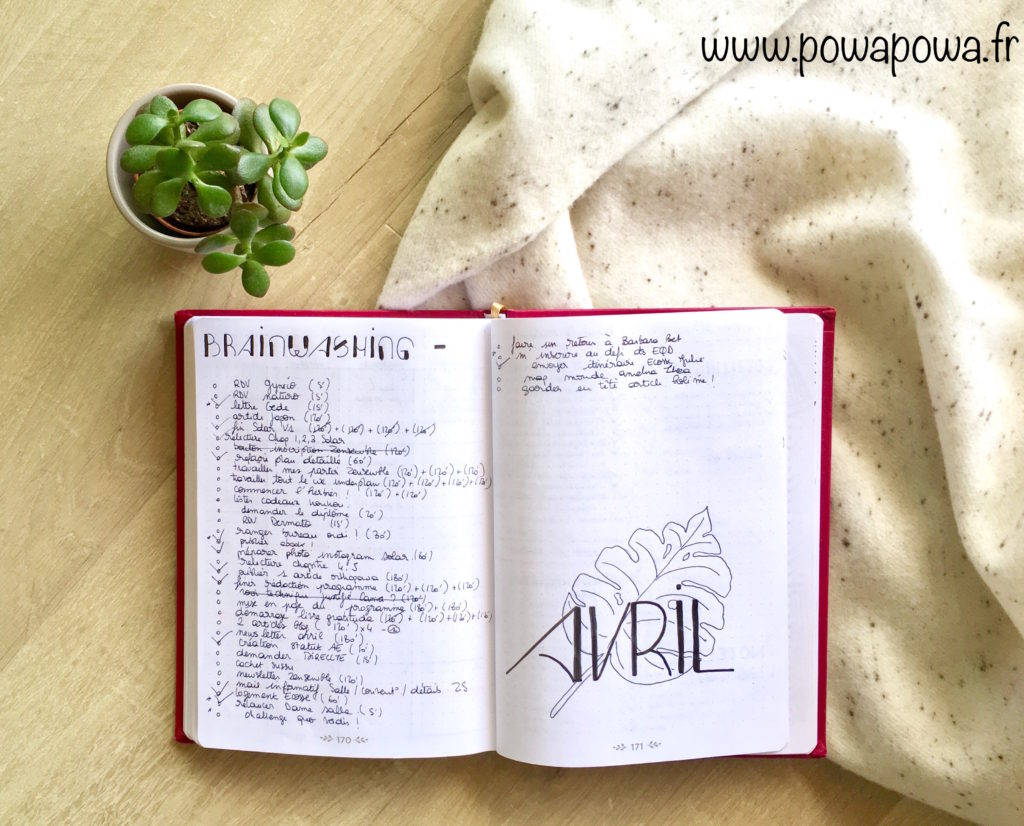 www.powapowa.fr
BRAINWASHING -
RDV Gynéco (5')
RDV naturo (5')
lettre Gede (15')
article Japon (120')
fin Solar V1 (120') + (120') + (120') + (120')
relecture Chap 1, 2, 3 Solar
bouton inscription Zensemble (120')
refaire plan détaillé (60')
travailler mes parties Zensemble (120') + (120') + (120')
travailler tout le we underplan (120') + (120') + (120') + (120')
commencer l'herbier ! (120') + (120')
listes cadeaux
demander le diplôme (20')
RDV Dermato (15')
ranger bureau ordi ! (30')
publier ebook !
préparer photo instagram solar (60')
relecture chapitre 4. 5
publier 1 article orthopowa (180')
finir rédaction programme (120') + (120') + (120')
mise en page du programme (180') + (180')
démarrage livre gratitude (120') + (120') + (120') + (120')
2 articles Blog (120') x4
newsletter avril (180')
création statut AE (60')
demander DIRECCTE (15')
cachet
newsletter Zensemble (120')
mail informatif Salle / / détails 25
logement Ecosse (60')
relancer Dame salle (5')
challenge quo vadis !
170
faire un retour à Barbara Bet
m'inscrire au défi des EQD
envoyer itinéraire Ecosse Julie
map monde
garder en tête article !
AVRIL
171